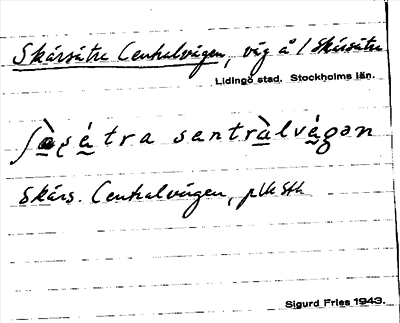 Skärsätra Centralvägen, väg å / Skärsätra
Lidingö stad. Stockholms län.
ʃæ̀ʂétra sentràlvégən
Skärs. Centralvägen, plk Sth
Sigurd Fries 1943.